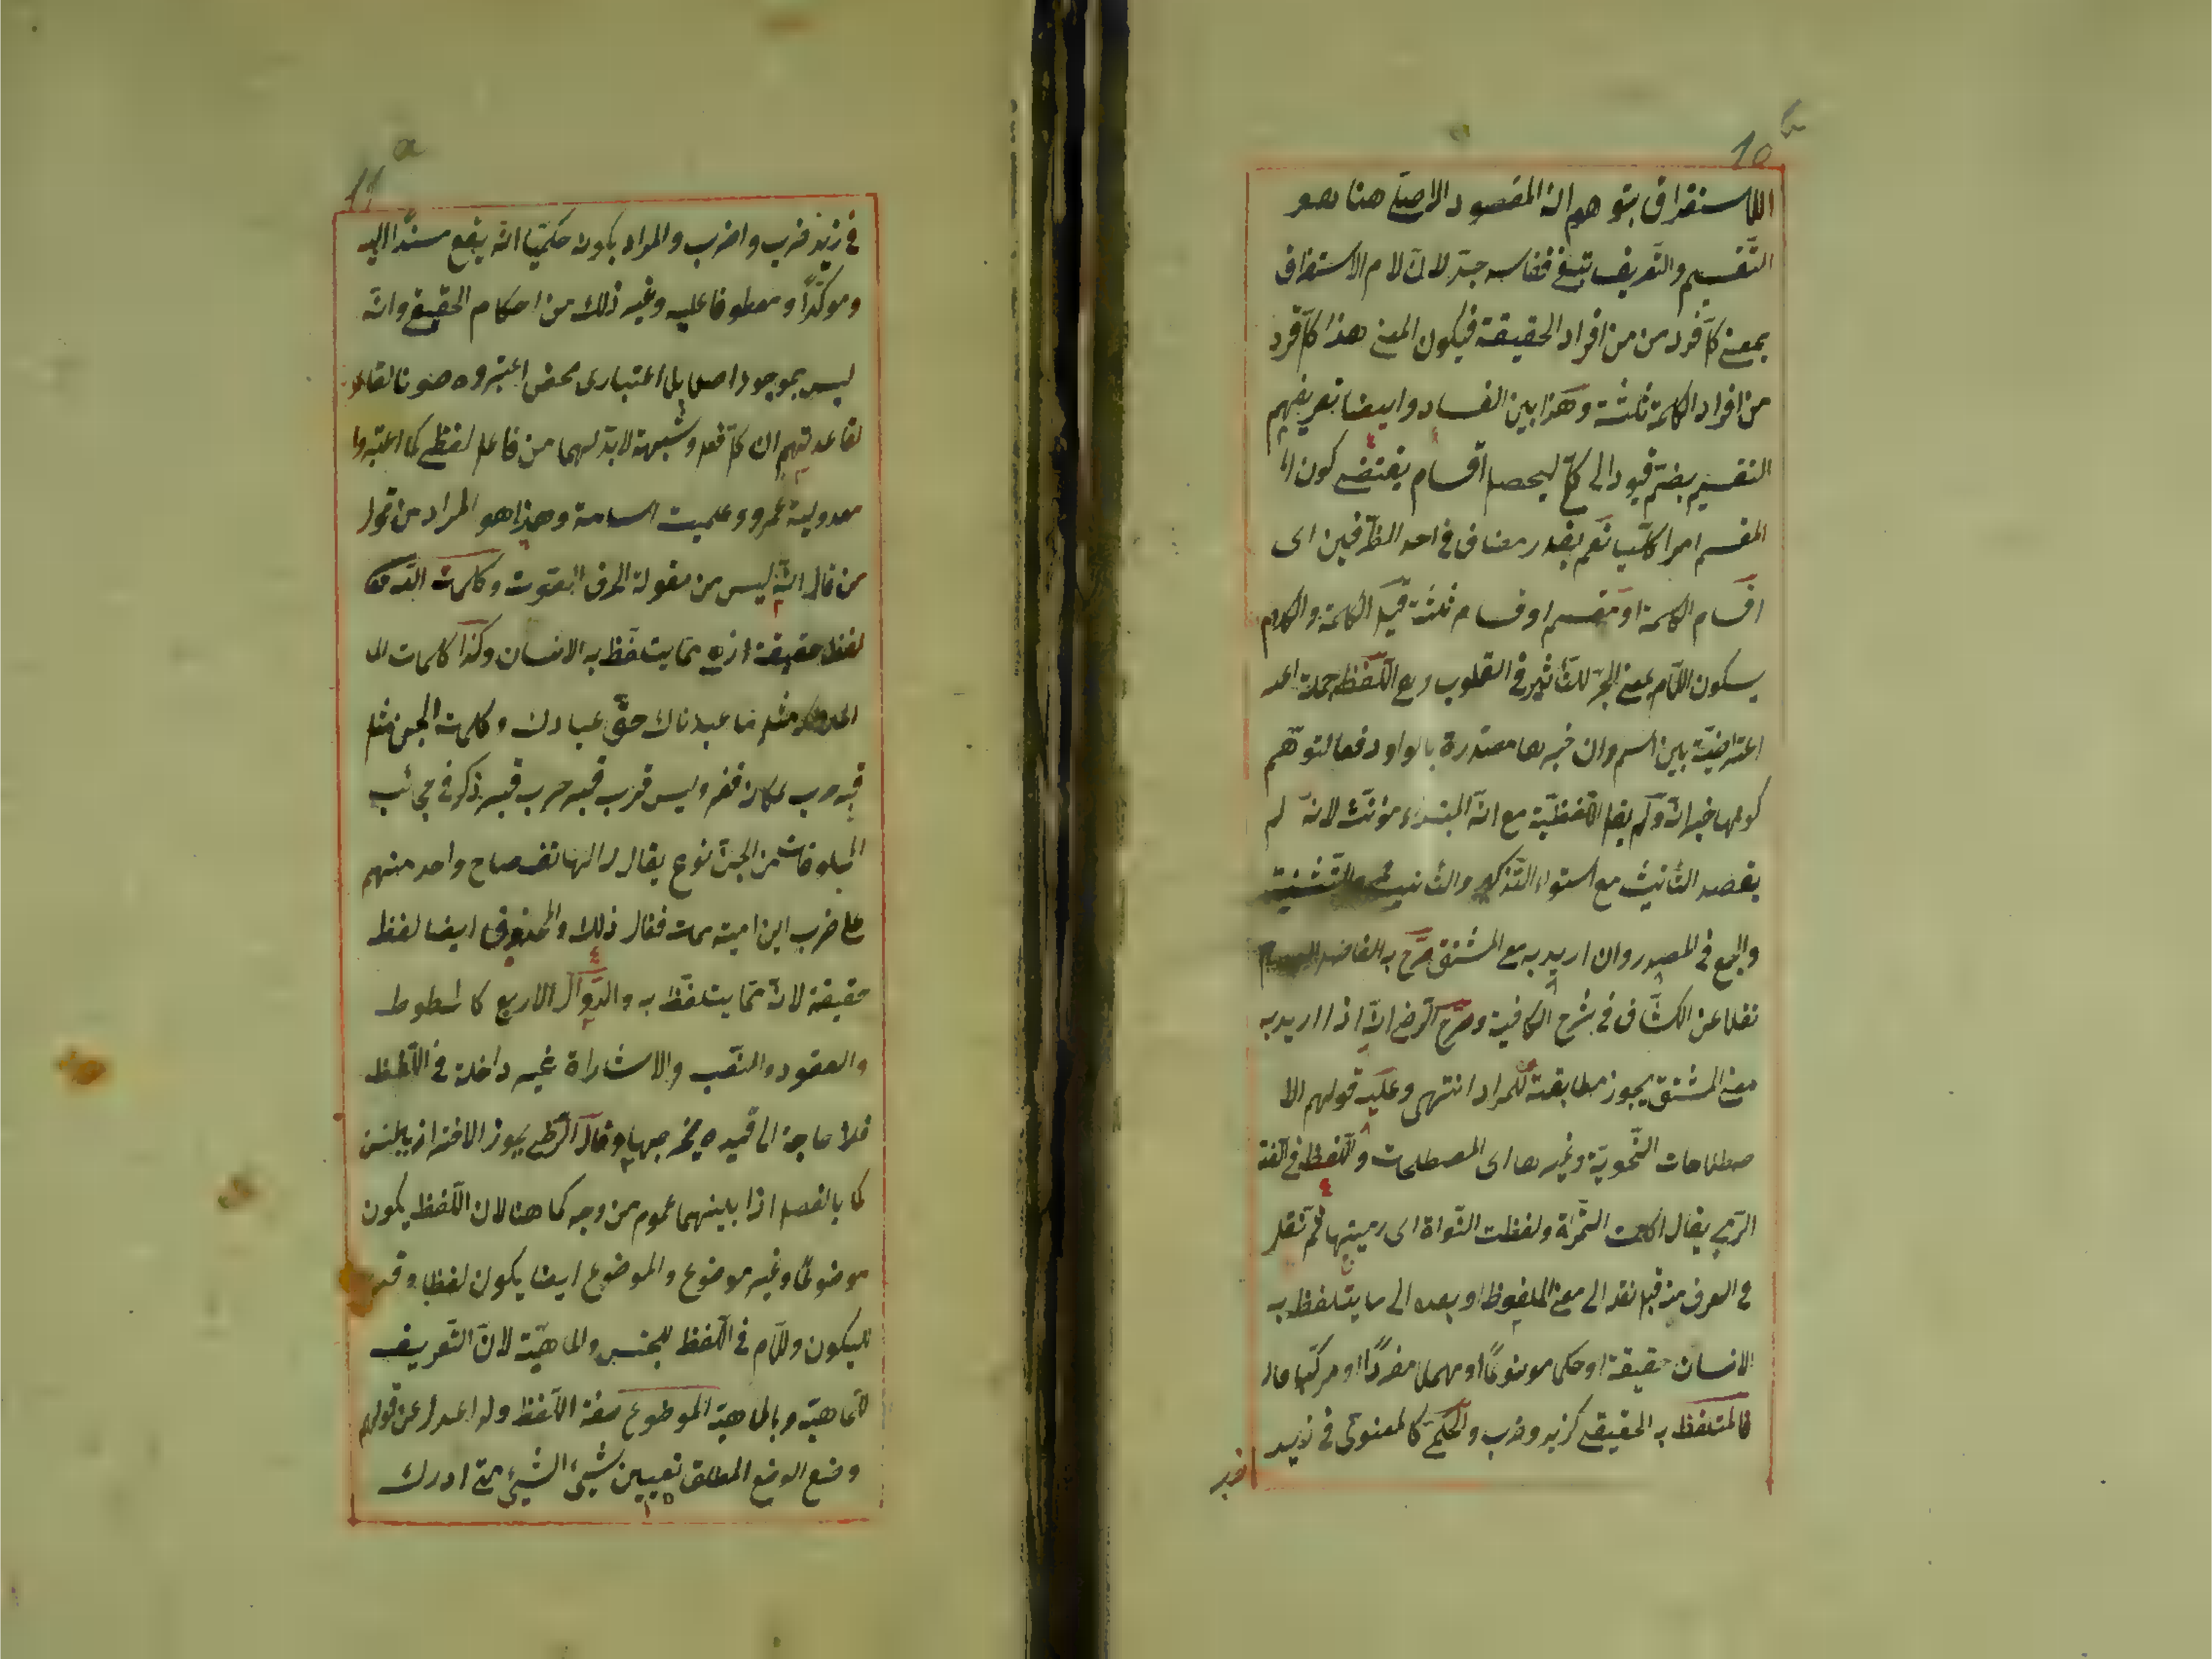 10 b
اللاستغراق بتوهم ان المقصود الاصلى هنا هو
التقسيم والتعريف تبعى ففاسد جدّ لانّ لام الاستغراق
بمعنى كلّ فرد من من افراد الحقيقة فيكون المعنى هذا كلّ فرد
من افراد الكلمة ثلثة وهذا بين الفساد وايضا تعريفهم
التقسيم بضمّ قيود الى كلّى ليحصل اقسام يقتضى كون ال
المقسم امرا كليّا نعم بقدر مضاف فى احد الطّرفين اى
اقسام الكلمة او مقسم اوقسام ثلثة قيل الكلمة والكلام
بسكون اللّام بمعنى الجرّ لتأثير فى القلوب وع اللّفظ جملة احد
اعتراضيّة بين اسم وان خبرها مصدرة بالواو دفعا لتوهّم
كونها خبر انّ ولم يقل اللّفظيّة مع انّ المبتداء مؤنّث لانّه لم
يقصد التأنيث مع استواء التّذكير والتأنيث والتّثنية
والجمع فى المصدر وان اريد به مع المشتق صرّح به الفاضل
نقلا عن الكشّاف فى شرح الكافية وصرّح الرّضى انّه اذا اريد به
معنى المشتقّ يجوز مطابقته للمراد انتهى وعليه قولهم الا
صطلاحات النّحويّة وغيرها اى المصطلحات واللّفظ فى اللّغة
الرّمى يقال اكلت التّمرة ولفظت النّواة اى رميتها ثمّ نقل
فى العرف من قبل نقله الى معنى الملفوظ او بعده الى ما يتلفّظ به
الانسان حقيقة او حكى موضوعًا او مهملا مفردًا او مركّبا
فالمتلفّظ به الحقيقى كزيد وضرب والحكمى كالمعنوى فى زيد
ضر
11 a
فى زيد ضرب واضرب والمراد بكونه حكميّا انّه يقع مسندًا اليه
وموكّدًا ومعطوفا عليه وغير ذلك من احكام الحقيقى وانّه
ليس بموجود اصلا بل اعتبارى محض اعتبروه صونا لقاعد
لقاعدتهم ان كلّ فعل وشبهه لابدّ لهما من فاعل لفظى كما اعتبروا
معدولية عمرو وعلميت اسامة وهذا هو المراد من قول
من قال انّه ليس من مقولة الحرف الصّوت وكلمات اللّه تعا
لفظ حقيقة اذ هى ممّا يتلفّظ به الانسان وكذا كلمات الم
الملائكة مثل ما عبدناك حقّ عبادك وكلمات الجن مثل
قبر حرب بمكان قفر وليس قرب قبر حرب قبر ذكر فى عجائب
المخلوقات من الجنّ نوع يقال له الهاتف صاح واحد منهم
على حرب ابن امية مات فقال ذلك والمحذوف ايضا لفظ
حقيقة لانّه ممّا يتلفّظ به والدّوالّ الاربع كالخطوط
والعقود والنّصب والاشاراة غير داخلة فى اللّفظ
فلا حاجة الى قيد يخرجها وقال الرّضى يجوز الاحتراز بالجنس
كما بالفصل اذا بينهما عموم من وجه كما هنا لان اللّفظ يكون
موضوعًا وغير موضوع والموضوع ايضا يكون لفظا وقد
لايكون واللّام فى اللّفظ للجنس والماهيّة لانّ التّعريف
للماهيّة وبالماهيّة الموضوع صفة اللّفظ ولم اعدل عن قولهم
وضع الوضع المطلق تعيين شيئ الشيئ متى ادرك